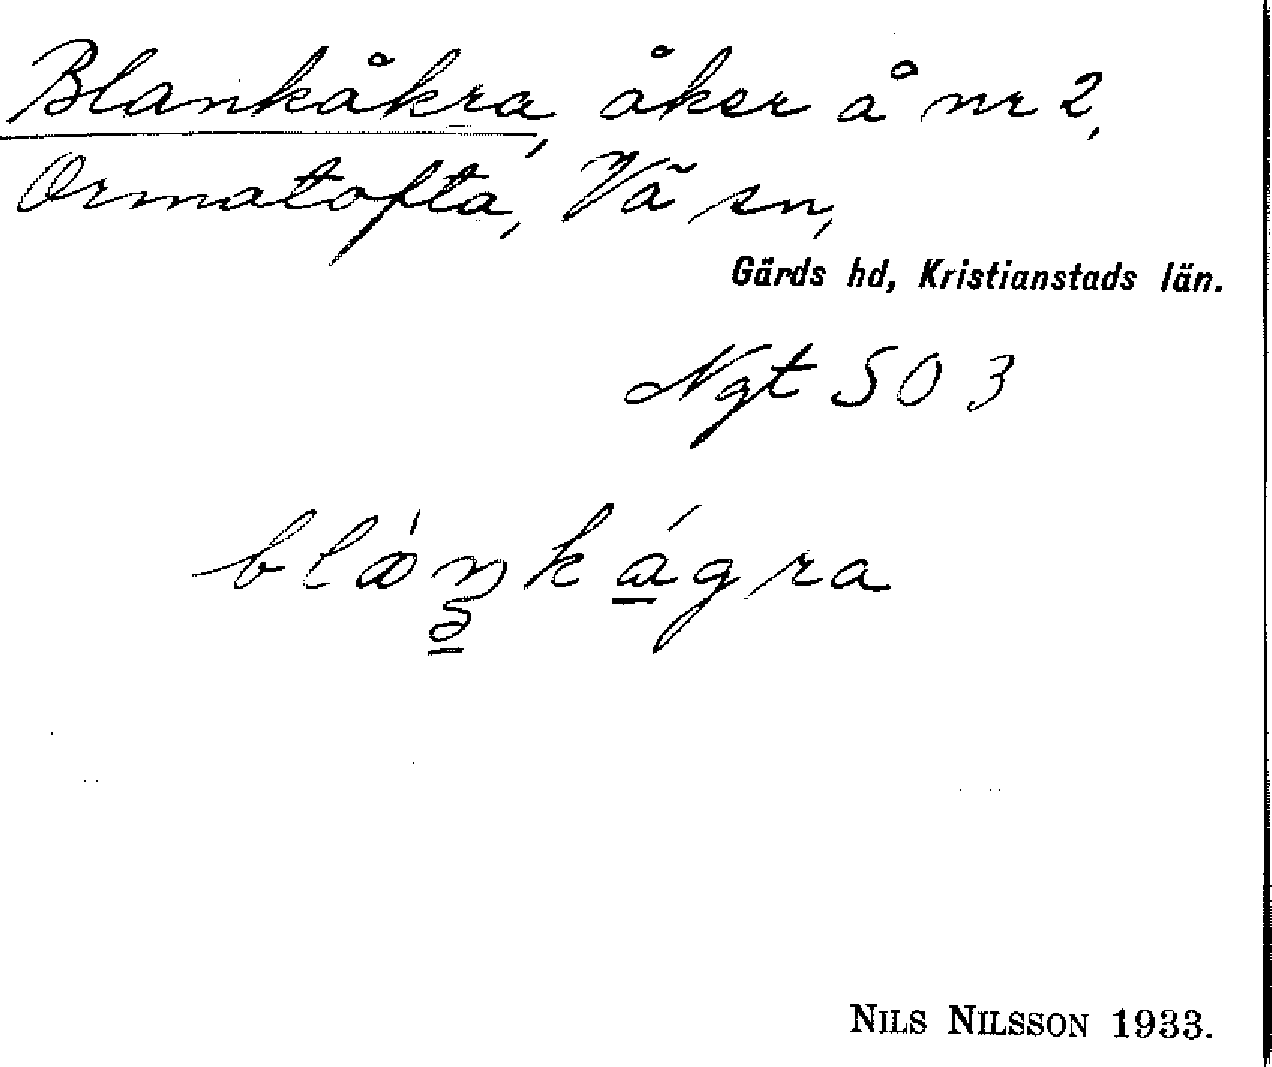 Blankåkra, åker å nr 2,
Ormatofta, Vä sn,
Gärds hd, Kristianstads län.
Ngt SO 3
NILS NILSSON 1933.